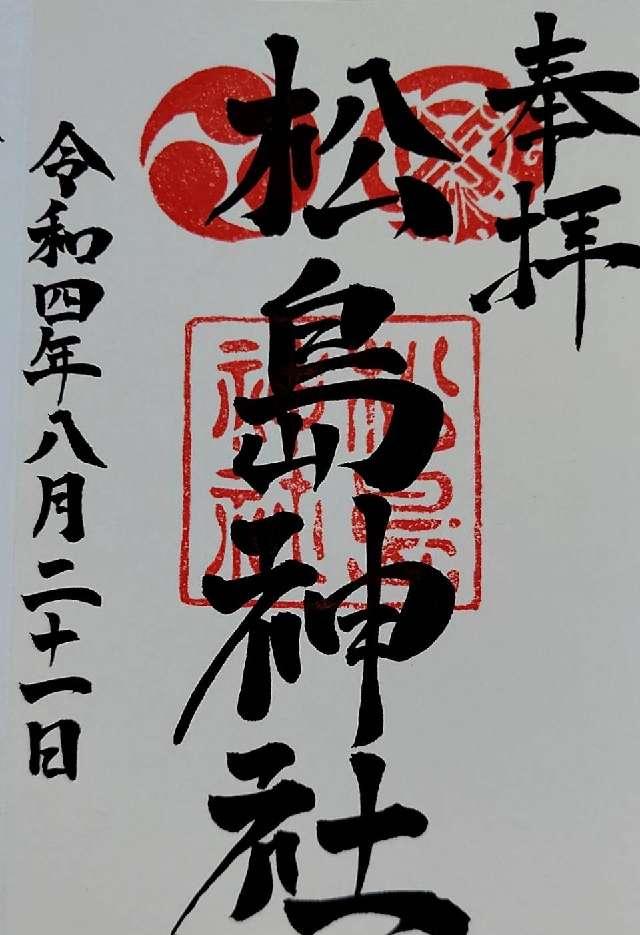 奉拝
松島神社
松島
神社
令和四年八月二十一日